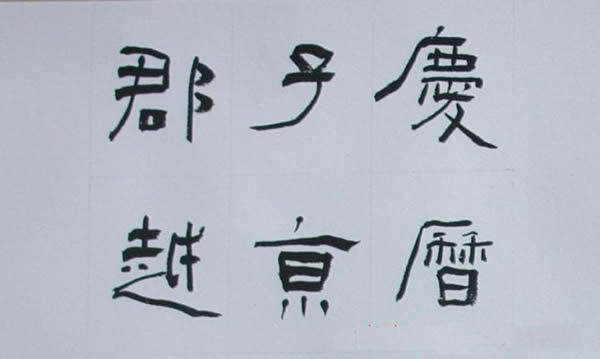 慶曆
子亰
郡越